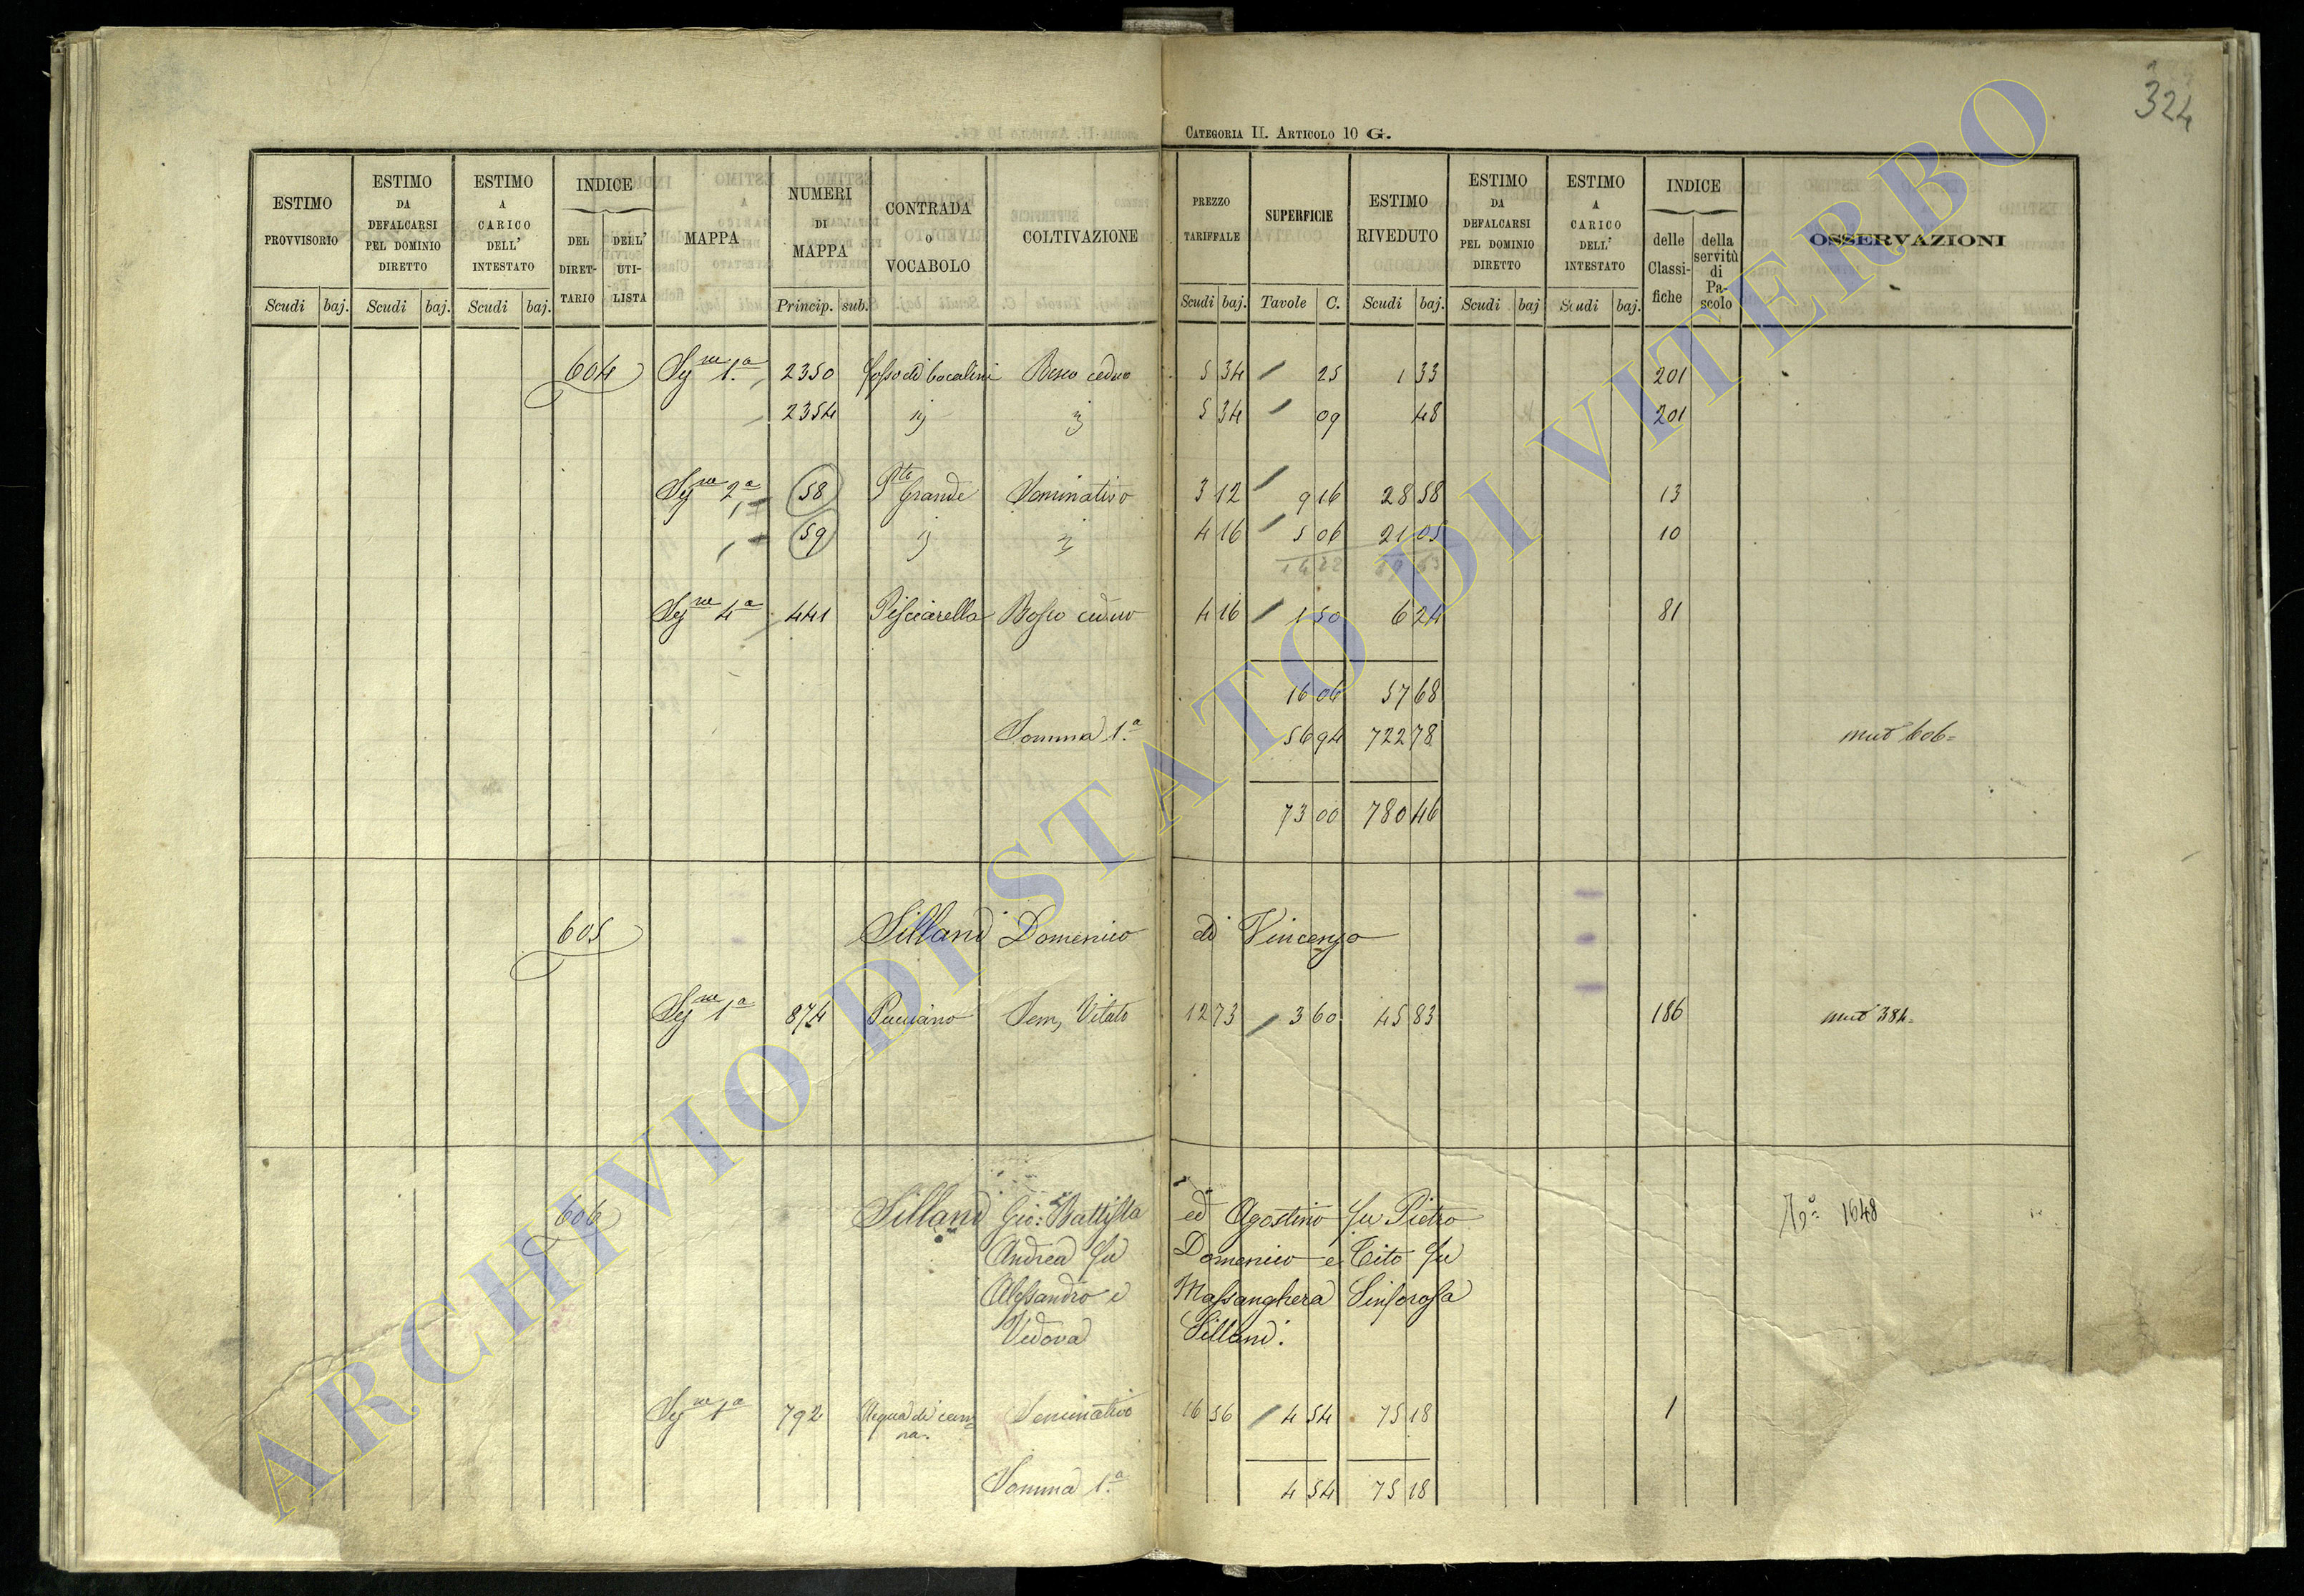 324
CATEGORIA II. ARTICOLO 10 G.
ESTIMO PROVVISORIO
ESTIMO DA DEFALCARSI PEL DOMINIO DIRETTO
ESTIMO A CARICO DELL' INTESTATO
INDICE
DEL DIRET-TARIO
DELL' UTI-LISTA
MAPPA
NUMERI DI MAPPA
CONTRADA O VOCABOLO
COLTIVAZIONE
PREZZO TARIFFALE
SUPERFICIE
ESTIMO RIVEDUTO
ESTIMO DA DEFALCARSI PEL DOMINIO DIRETTO
ESTIMO A CARICO DELL' INTESTATO
INDICE
delle Classi-fiche
della servitù di Pa-scolo
OSSERVAZIONI
Scudi baj. Scudi baj. Scudi baj. Princip. sub. Scudi baj. Tavole C. Scudi baj. Scudi baj Scudi baj.
604 Sez.ne 1.a 2350 Fosso di bocalini Bosco ceduo 5 34 25 1 33 201
2354 ij ij 5 34 09 48 201
Sez.ne 2.a 58 P.te Grande Seminativo 3 12 9 16 28 58 13
59 ij ij 4 16 5 06 21 05 10
14 22 49 63
Sez.ne 4.a 441 Pisciarella Bosco ceduo 4 16 1 50 6 24 81
16 06 57 68
Somma 1.a 56 94 722 78 mut 606=
73 00 780 46
605 Sillani Domenico di Vincenzo
Sez.ne 1.a 874 Pacciano Sem, Vitato 12 73 3 60 45 83 186 mut 384=
606 Sillani Gio: Battista ed Agostino fu Pietro 1648
Andrea fu Domenico e Tito fu
Alessandro e Massanghera Sinforosa
Vedova Sillani.
Sez.ne 1.a 792 Acqua di can=na. Seminativo 16 56 4 54 75 18 1
Somma 1.a 4 54 75 18
ARCHIVIO DI STATO DI VITERBO